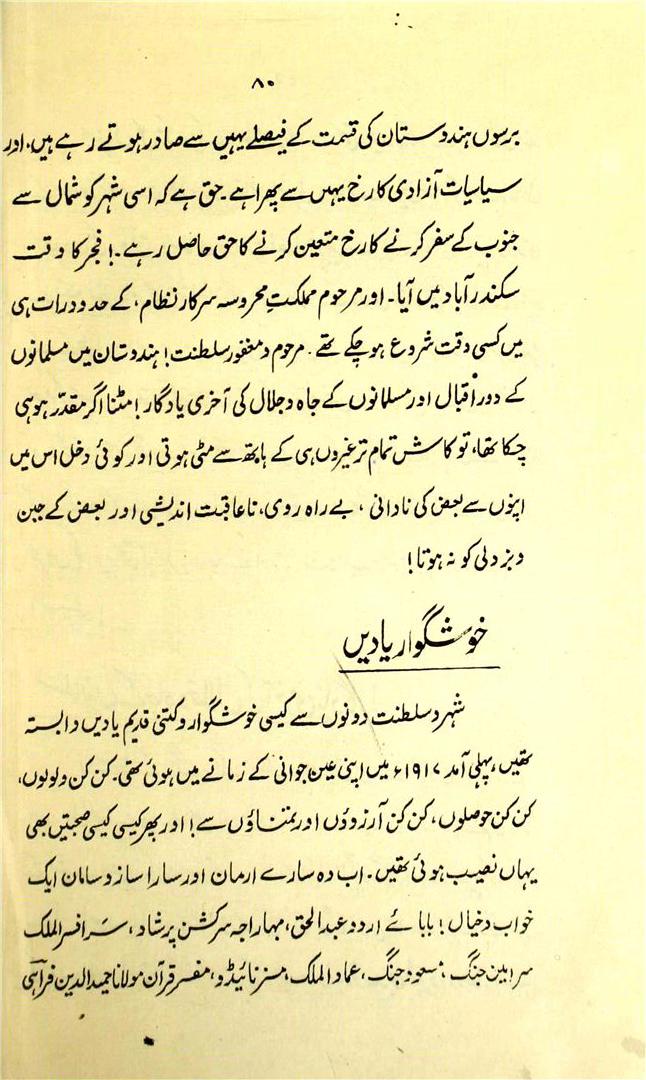 ۸۰
برسوں ہندوستان کی قسمت کے فیصلے یہیں سے صادر ہوتے رہے ہیں، اور
سیاسیات آزادی کا رخ یہیں سے پھرا ہے۔ حق ہے کہ اسی شہر کو شمال سے
جنوب کے سفر کرنے کا رخ متعین کرنے کا حق حاصل رہے۔! فجر کا وقت
سکندر آباد میں آیا۔ اور مرحوم مملکتِ محروسہ سرکار نظام، کے حدود رات ہی
میں کسی وقت شروع ہوچکے تھے۔ مرحوم و مغفور سلطنت! ہندوستان میں مسلمانوں
کے دور اقبال اور مسلمانوں کے جاہ و جلال کی آخری یادگار! مٹنا اگر مقدر ہو ہی
چکا تھا، تو کاش تمام تر غیروں ہی کے ہاتھ سے مٹی ہوتی اور کوئی دخل اس میں
اپنوں سے بعض کی نادانی، بے راہ روی، ناعاقبت اندیشی اور بعض کے جبن
و بزدلی کو نہ ہوتا!
خوشگوار یادیں
شہر و سلطنت دونوں سے کیسی خوشگوار و کتنی قدیم یادیں وابستہ
تھیں، پہلی آمد ۱۹۱۷ء میں اپنی عین جوانی کے زمانے میں ہوئی تھی۔ کن کن ولولوں،
کن کن حوصلوں، کن کن آرزوؤں اور تمناؤں سے! اور پھر کیسی کیسی صحبتیں بھی
یہاں نصیب ہوئی تھیں۔ اب وہ سارے ارمان اور سارا ساز و سامان ایک
خواب و خیال! بابائے اردو عبدالحق، مہاراجہ سرکشن پرشاد، سر افسر الملک
سر امین جنگ، مسعود جنگ، عماد الملک، مسز نائیڈو، مفسر قرآن مولانا حمید الدین فراہی